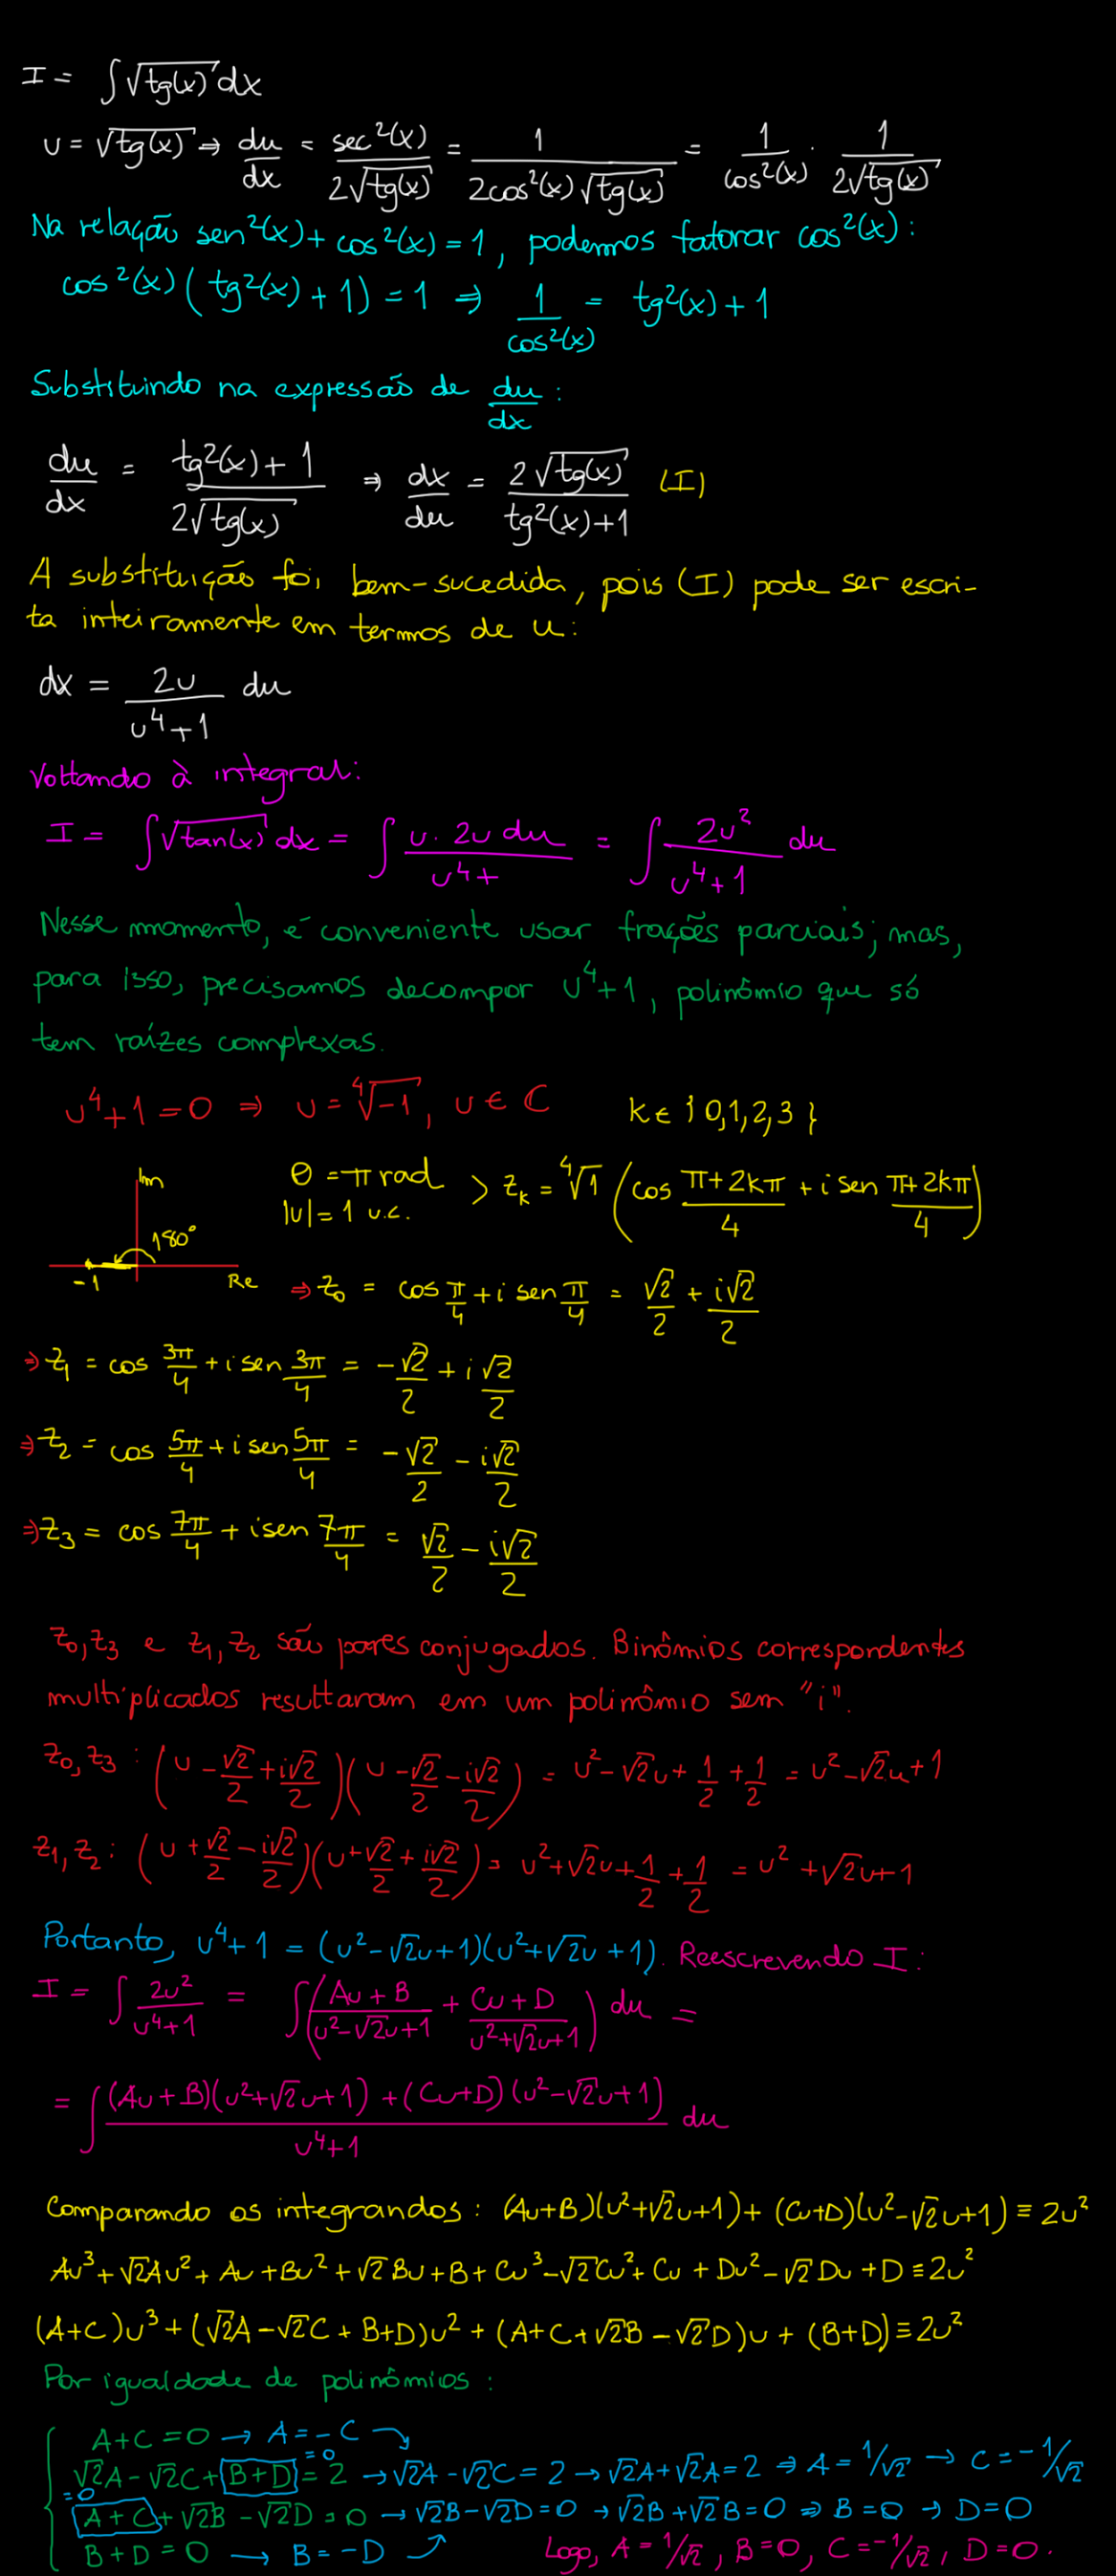 I = ∫√tg(x) dx
u = √tg(x) ⇒ du/dx = sec²(x)/2√tg(x) = 1/2cos²(x)√tg(x) = 1/cos²(x) · 1/2√tg(x)
Na relação sen²(x) + cos²(x) = 1, podemos fatorar cos²(x):
cos²(x)(tg²(x) + 1) = 1 ⇒ 1/cos²(x) = tg²(x) + 1
Substituindo na expressão de du/dx :
du/dx = tg²(x) + 1/2√tg(x) ⇒ dx/du = 2√tg(x)/tg²(x)+1 (I)
A substituição foi bem-sucedida, pois (I) pode ser escri-
ta inteiramente em termos de u:
dx = 2u/u⁴+1 du
Voltando à integral:
I = ∫√tan(x) dx = ∫ u · 2u du/u⁴+ = ∫ 2u²/u⁴+1 du
Nesse momento, é conveniente usar frações parciais; mas,
para isso, precisamos decompor u⁴+1, polinômio que só
tem raízes complexas.
u⁴+1 = 0 ⇒ u = ⁴√-1, u ∈ ℂ k ∈ {0,1,2,3}
Im
180°
-1
Re
θ = π rad
|u| = 1 u.c.
> z_k = ⁴√1 (cos π+2kπ/4 + i sen π+2kπ/4)
⇒ z₀ = cos π/4 + i sen π/4 = √2/2 + i√2/2
⇒ z₁ = cos 3π/4 + i sen 3π/4 = -√2/2 + i√2/2
⇒ z₂ = cos 5π/4 + i sen 5π/4 = -√2/2 - i√2/2
⇒ z₃ = cos 7π/4 + i sen 7π/4 = √2/2 - i√2/2
z₀, z₃ e z₁, z₂ são pares conjugados. Binômios correspondentes
multiplicados resultaram em um polinômio sem "i".
z₀, z₃ : (u - √2/2 + i√2/2)(u - √2/2 - i√2/2) = u² - √2u + 1/2 + 1/2 = u² - √2u + 1
z₁, z₂ : (u + √2/2 - i√2/2)(u + √2/2 + i√2/2) = u² + √2u + 1/2 + 1/2 = u² + √2u + 1
Portanto, u⁴+1 = (u² - √2u + 1)(u² + √2u + 1). Reescrevendo I :
I = ∫ 2u²/u⁴+1 = ∫(Au + B/u² - √2u + 1 + Cu + D/u² + √2u + 1) du =
= ∫ (Au + B)(u² + √2u + 1) + (Cu + D)(u² - √2u + 1)/u⁴+1 du
Comparando os integrandos : (Au+B)(u²+√2u+1) + (Cu+D)(u²-√2u+1) ≡ 2u²
Au³ + √2Au² + Au + Bu² + √2Bu + B + Cu³ - √2Cu² + Cu + Du² - √2Du + D ≡ 2u²
(A+C)u³ + (√2A - √2C + B+D)u² + (A+C+√2B - √2D)u + (B+D) ≡ 2u²
Por igualdade de polinômios :
A+C = 0 → A = -C
=0
√2A - √2C + B+D = 2 → √2A - √2C = 2 → √2A + √2A = 2 ⇒ A = 1/√2 → C = -1/√2
=0
A+C + √2B - √2D = 0 → √2B - √2D = 0 → √2B + √2B = 0 ⇒ B = 0 → D = 0
B+D = 0 → B = -D
Logo, A = 1/√2, B = 0, C = -1/√2, D = 0.